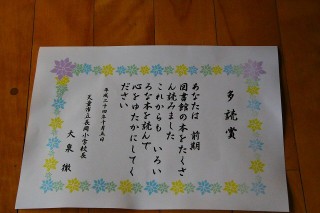 多読賞
あなたは 前期
図書館の本をたくさ
ん読みました
これからも いろい
ろな本を読んで
心をゆたかにしてく
ださい
平成二十四年十月五日
天童市立長岡小学校長
大泉 徹